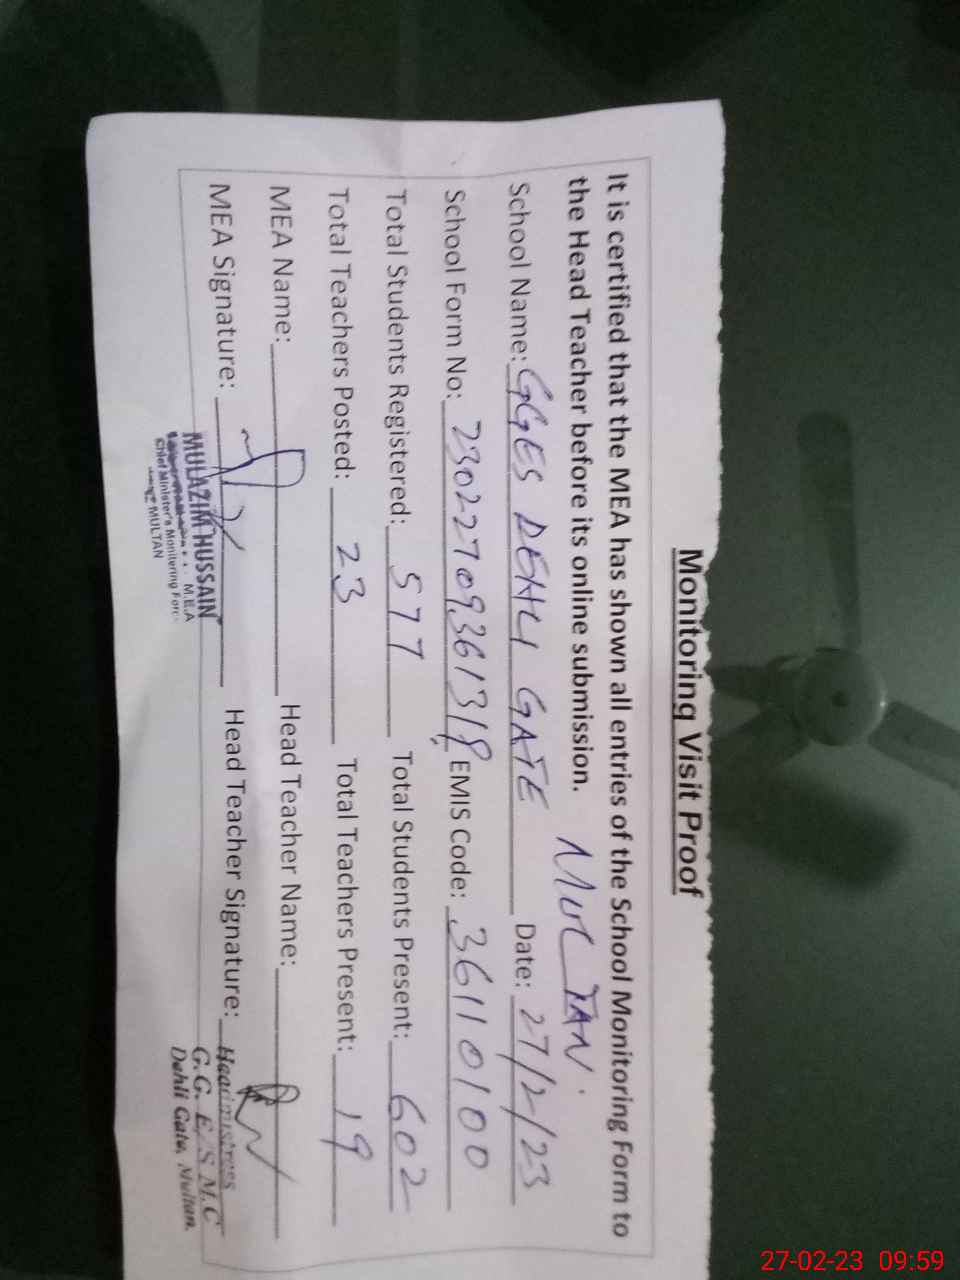 Monitoring Visit Proof
It is certified that the MEA has shown all entries of the School Monitoring Form to
the Head Teacher before its online submission. MULTAN.
School Name: GGES DEHLI GATE Date: 27/2/23
School Form No: 230227093613 EMIS Code: 36110100
Total Students Registered: 577 Total Students Present: 602
Total Teachers Posted: 23 Total Teachers Present: 19
MEA Name: Head Teacher Name:
MEA Signature: Head Teacher Signature:
MULAZIM HUSSAIN
M.E.A
Chief Minister's Monitoring Force
MULTAN
Headmistress
G.G. E/S M.C
Dehli Gate, Multan.
27-02-23 09:59